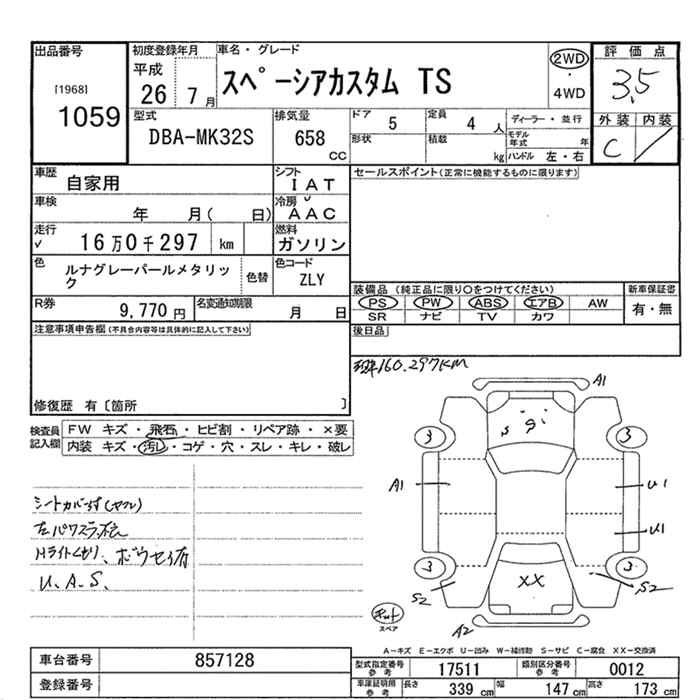 出品番号 初度登録年月 車名・グレード 評価点
[1968] 1059 平成 26 7月 スペーシアカスタム TS 2WD・4WD 3.5
型式 DBA-MK32S 排気量 658 CC ドア 5 定員 4人 ディーラー・並行 外装 内装
形状 積載 kg モデル年式 年 ハンドル 左・右 C
車歴 自家用 シフト IAT セールスポイント(正常に機能するものに限ります)
車検 年 月( 日) 冷房 AAC
走行 16万0千297 km 燃料 ガソリン
色 ルナグレーパールメタリック 色替 色コード ZLY
装備品 (純正品に限り○をつけてください) 新車保証書
PS PW ABS エアB AW 有・無
SR ナビ TV カワ
R券 9,770円 名変通知期限 月 日
後日品
注意事項申告欄(不具合内容等は具体的に記入して下さい)
160.297KM
修復歴 有〔箇所 〕
検査員記入欄 FW キズ・飛石・ヒビ割・リペア跡・×要
内装 キズ・汚レ・コゲ・穴・スレ・キレ・破レ
A1
S 9
3 3
A1 U1
U1
3 3
XX
S2 S2
A2
スペア
U、A、S、
A-キズ E-エクボ U-凹み W-補修跡 S-サビ C-腐食 XX-交換済
車台番号 857128 型式指定番号 参考 17511 類別区分番号 参考 0012
登録番号 車庫証明用 参考 長さ 339 cm 幅 147 cm 高さ 173 cm